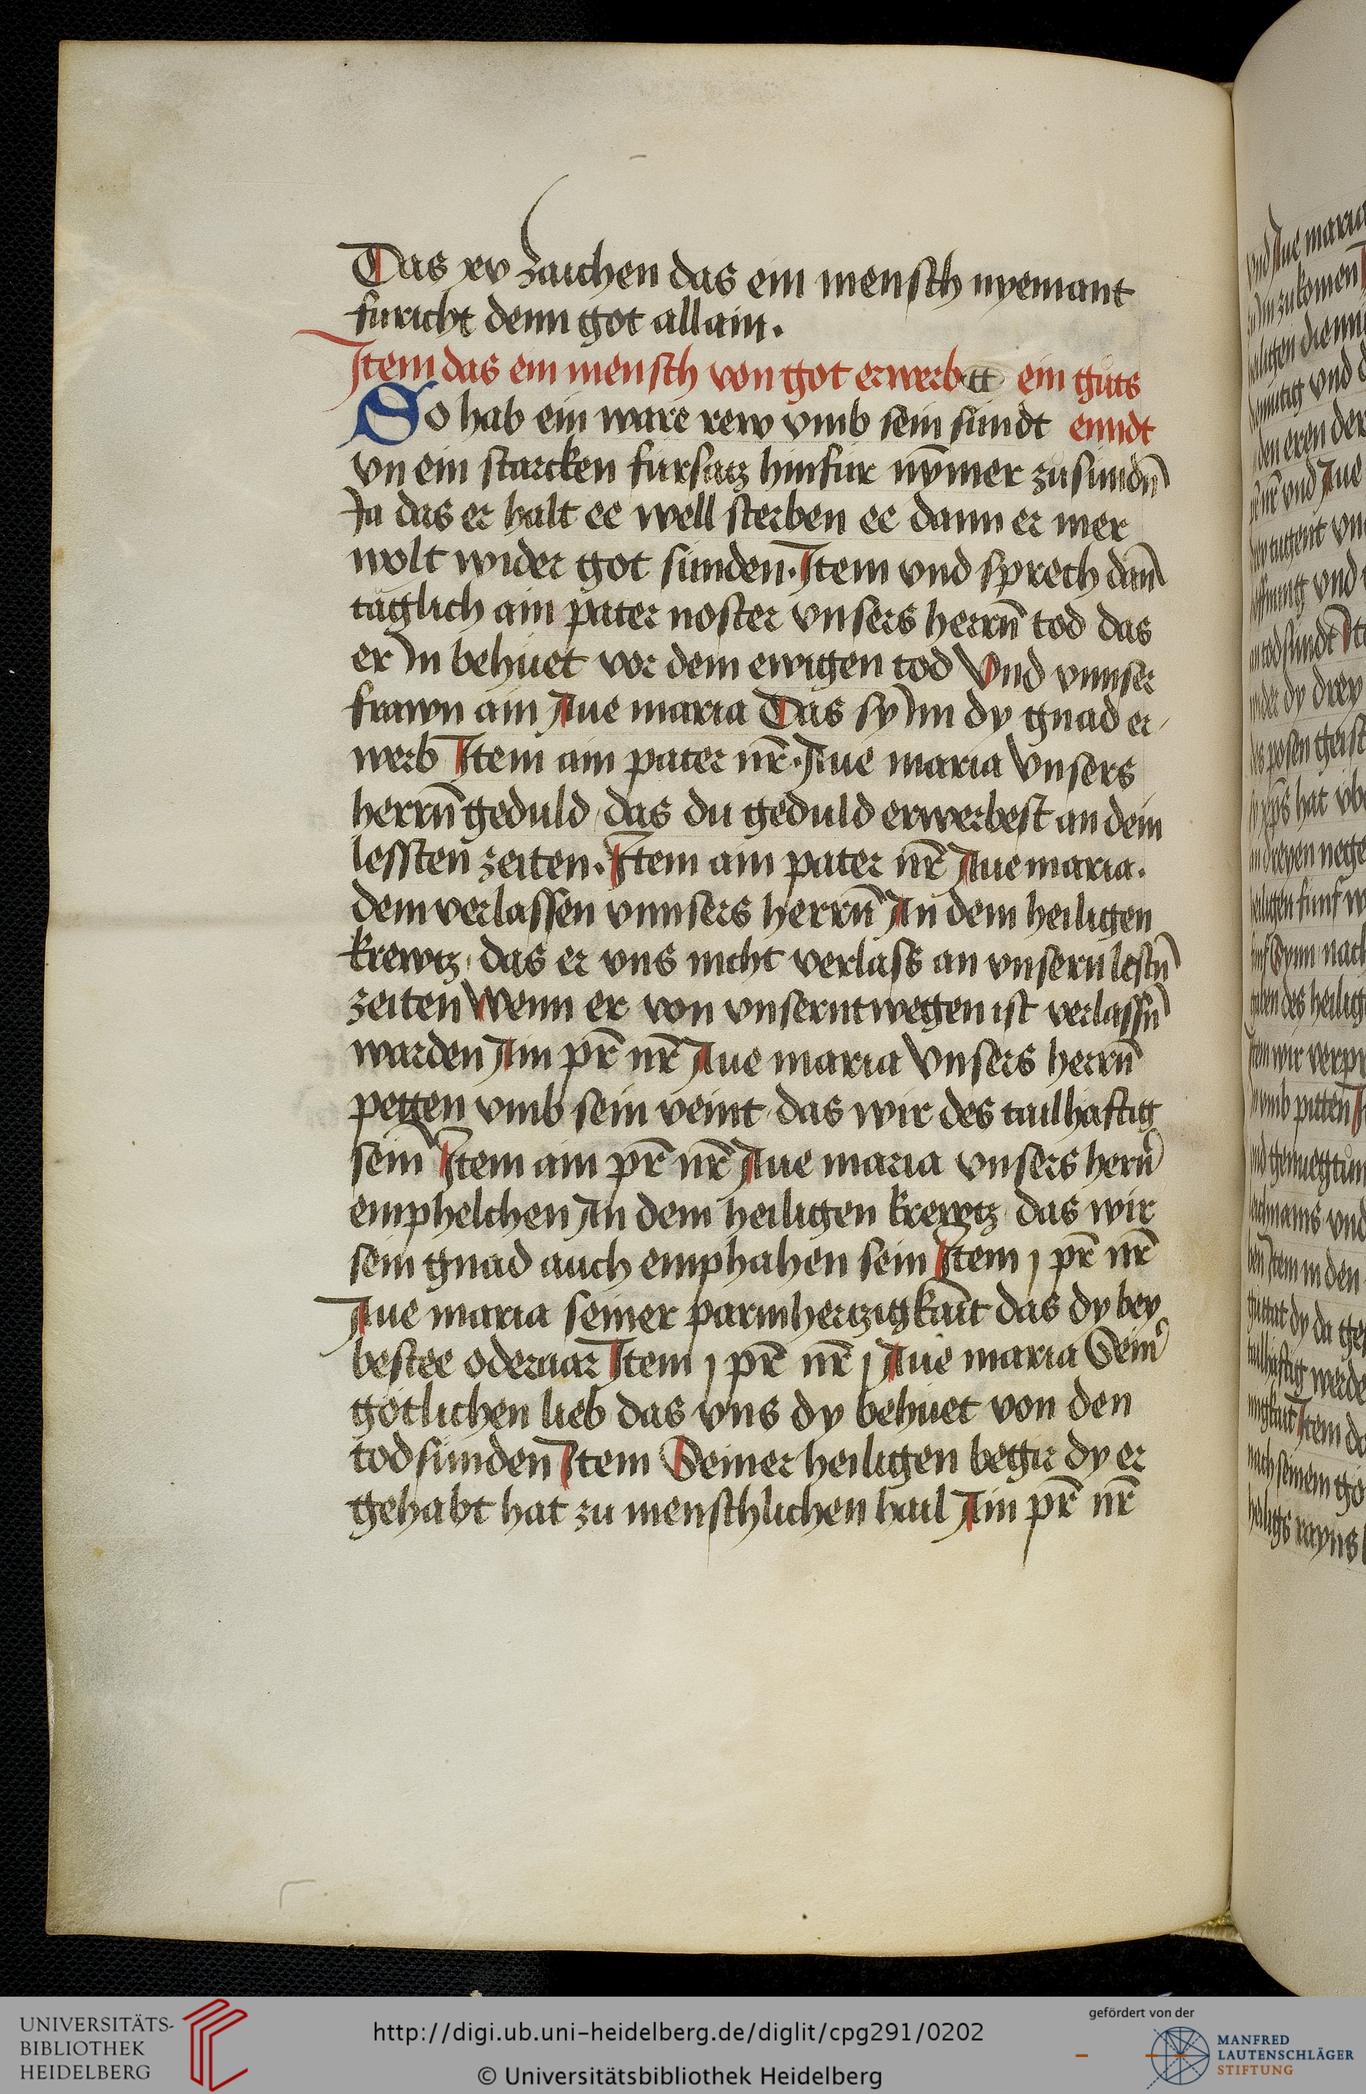 Das xv zaichen das ein mensch nyemant
furicht denn got allain.
Item das ein mensch von got erwerb ein guts
So hab ein ware rew vmb sein sündt enndt
vn ein starcken fursatz hinfür nȳmer zusundn̄
Ja das er halt ee well sterben ee dann er mer
wolt wider got sünden. Item vnd sprech dan̄
täglich ain pater noster vnsers herrn̄ tod das
er In behüet vor dem ewigen tod Vnd vnnser
frawn ain Aue maria Das sy Im dy gnad er-
werb Item ain pater nr̄. Aue maria Vnsers
herrn̄ geduld das du geduld erwerbest an dein
lessten̄ zeiten. Item ain pater nr̄ Aue maria.
dem verlassen vnnsers herrn̄ An dem heiligen
krewtz das er vns nicht verlass an vnsern lestn̄
zeiten Wenn er von vnserntwegen ist verlassn̄
warden Ain pr̄ nr̄ Aue maria Vnsers herrn̄
petten vmb sein veint das wir des tailhaftig
sein̄ Item ain pr̄ nr̄ Aue maria vnsers hern̄
emphelchen An dem heiligen krewtz das wir
sein gnad auch emphahen sein Item j pr̄ nr̄
Aue maria seiner parmhertzigkait das dy bey
bestee Item j pr̄ nr̄ j Aue maria Sein̄
götlichen lieb das vns dy behüet von den
todsünden̄ Item Seiner heiligen begir dy er
gehabt hat zu menschlichen hail Ain pr̄ nr̄
UNIVERSITÄTS-
BIBLIOTHEK
HEIDELBERG
http://digi.ub.uni-heidelberg.de/diglit/cpg291/0202
© Universitätsbibliothek Heidelberg
gefördert von der
MANFRED
LAUTENSCHLÄGER
STIFTUNG